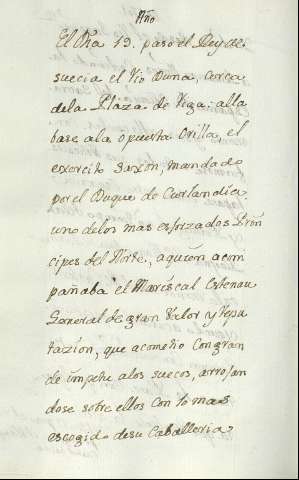 Año
El Dia 19. paso el Rey de
suecia el rio Duna, cerca
dela Plaza de Riga: alla
base ala opuesta orilla, el
exercito saxon, mandado
por el Duque de Curlandia
uno delos mas esforzados Prin
cipes del Norte, aquien acom
pañaba el Mariscal Estenau
General de gran Valor y Repu
tazion, que acometio con gran
de impetu alos suecos, arrojan
dose sobre ellos con lo mas
escogido desu Caballeria.